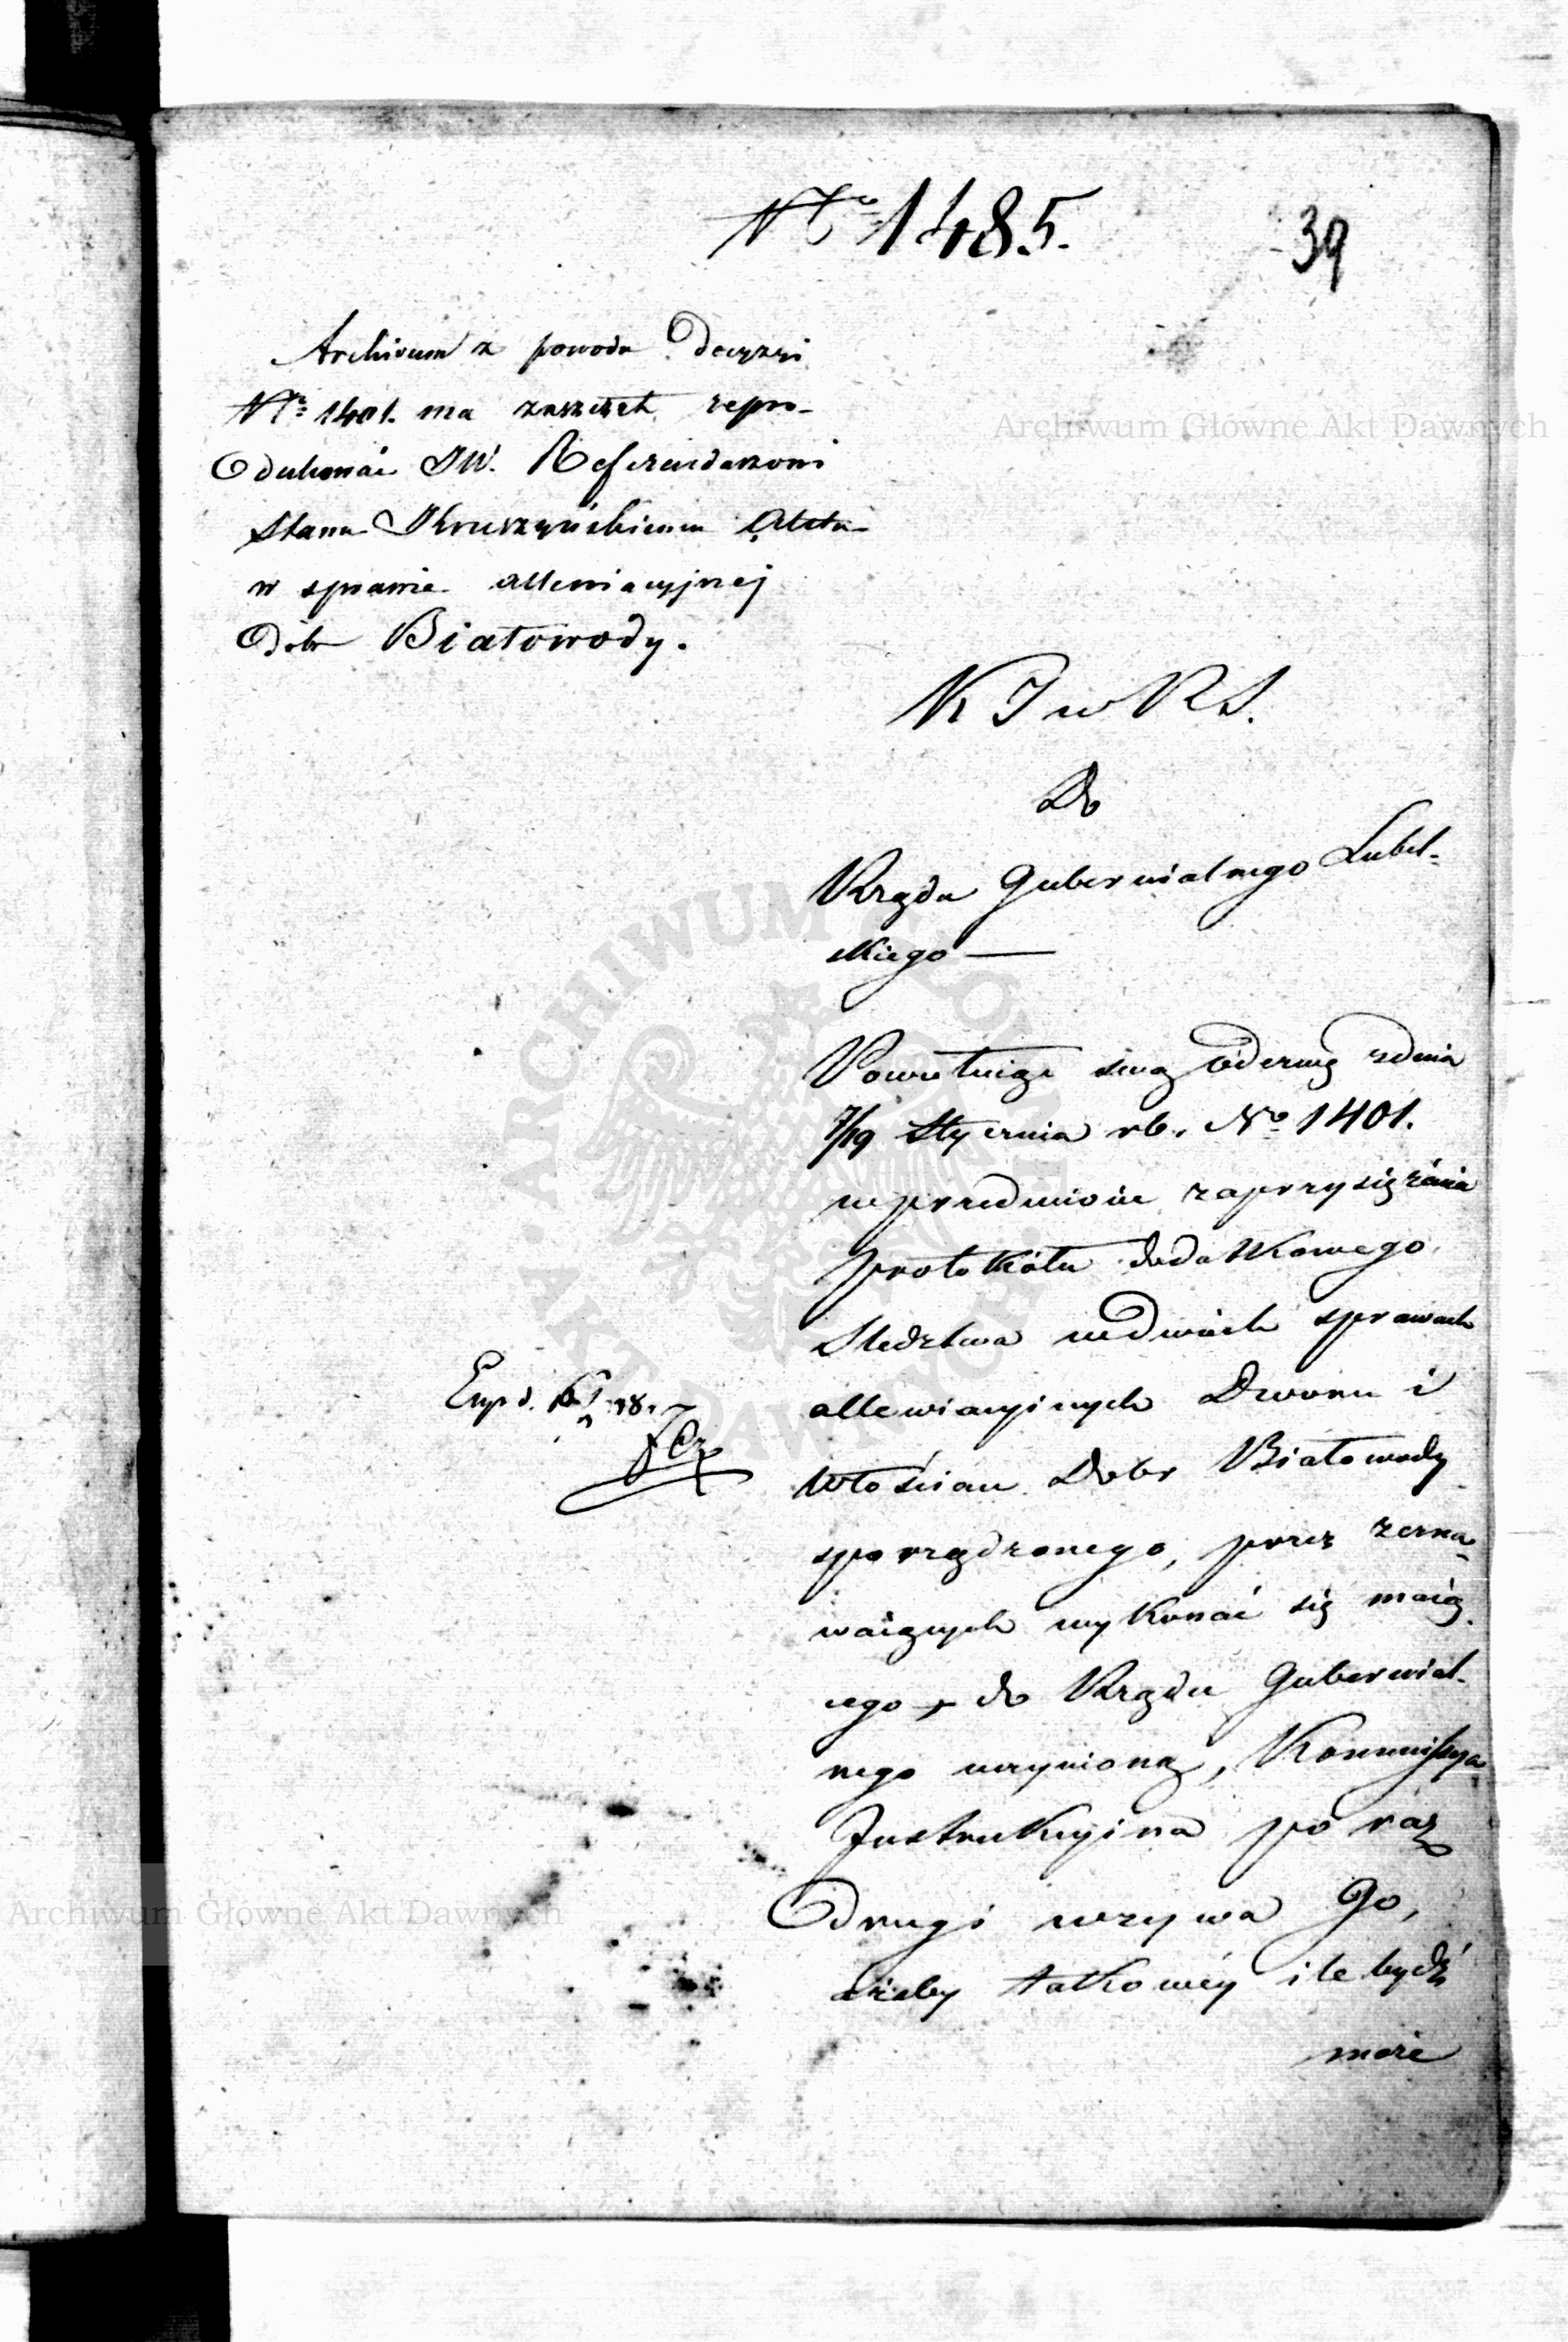 Nro 1485.
39
Archivum z powodu Decyzyi
Nro 1401. ma zaszczyt repro-
dukować JW. Referendarzowi
Stanu Kruszyńskiemu Akta
w sprawie allewiacyjnej
Dóbr Białowody.
K J w K P.
Do
Rządu Gubernialnego Lubel-
skiego —
Powołując swą odezwę z dnia
7/19 Stycznia rb. No 1401.
w przedmiocie zaprzysiężenia
protokółu dodatkowego
Śledztwa w dwóch sprawach
allewiacyinych Dworu i
Włościan Dobr Białowody
sporządzonego, przez zezna-
waiących wykonać się maią-
cego, do Rządu Gubernial-
nego uczynioną, Kommissya
Instrukcyina po raz
drugi wzywa Go,
ażeby takowéy ile bydź
może
Exp d.
Archiwum Głowne Akt Dawnych
Archiwum Głowne Akt Dawnych
ARCHIWUM GŁÓWNE AKT DAWNYCH